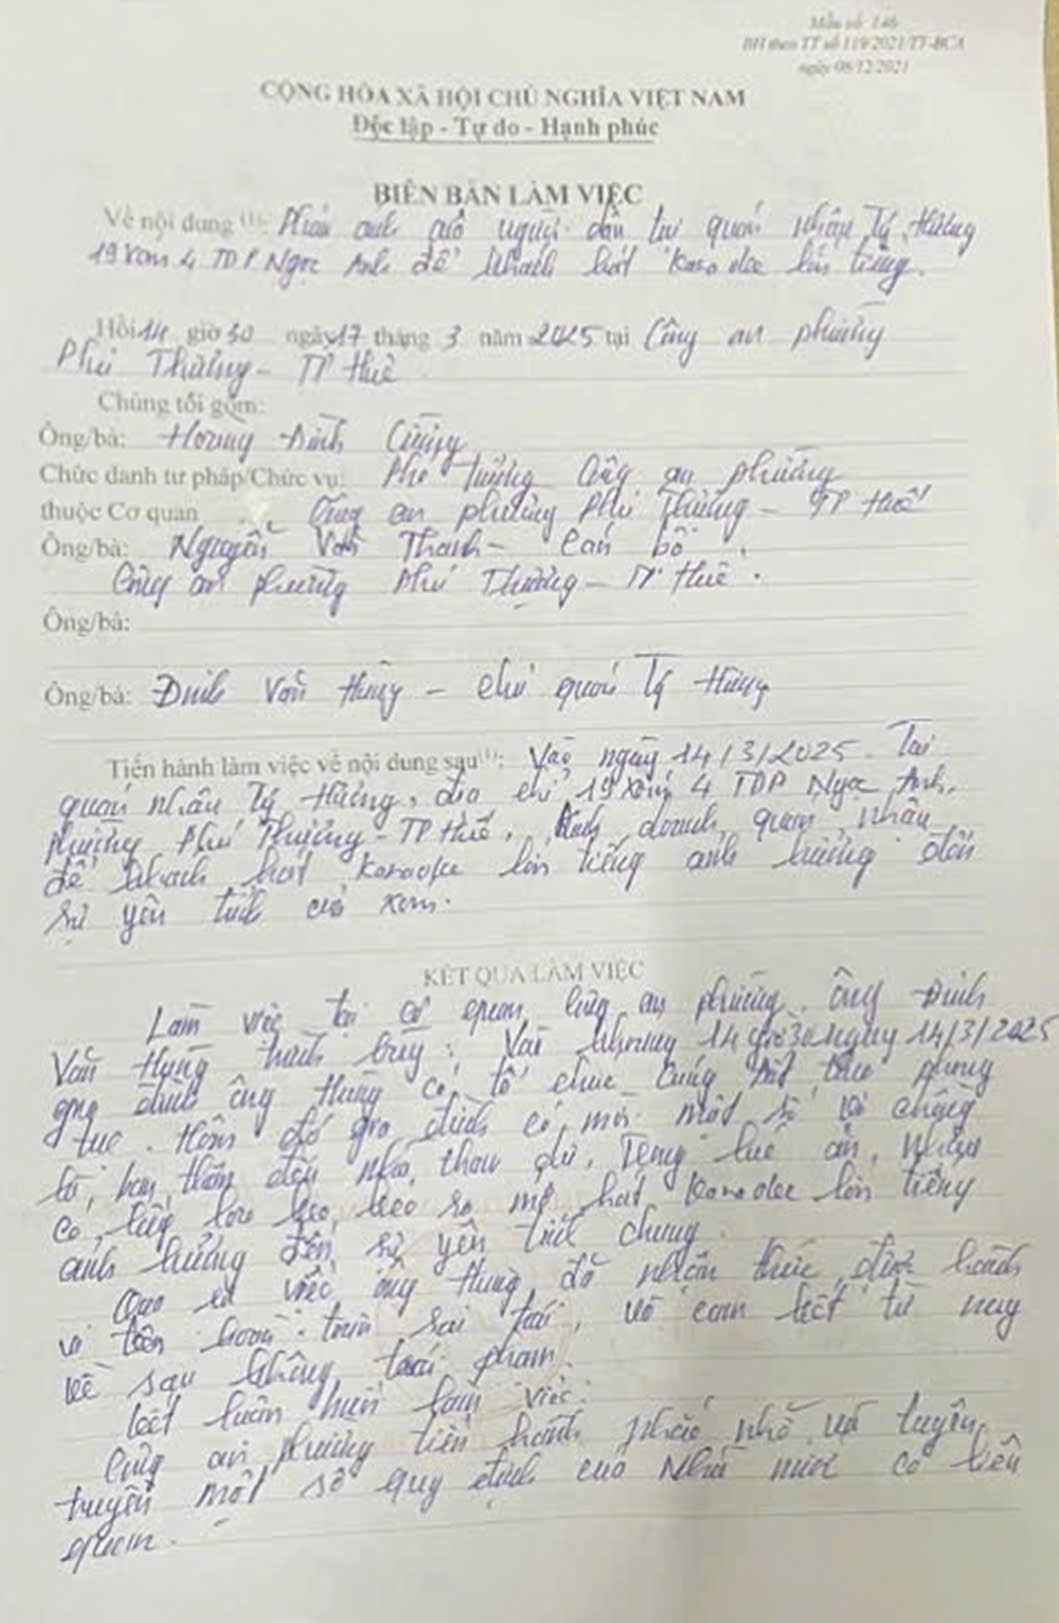 Mẫu số: 146
BH theo TT số 119/2021/TT-BCA
ngày 08/12/2021
CỘNG HÒA XÃ HỘI CHỦ NGHĨA VIỆT NAM
Độc lập - Tự do - Hạnh phúc
BIÊN BẢN LÀM VIỆC
Về nội dung (1): Phản ánh của người dân tại quán nhậu Tý Hưng
19 xóm 4 TDP Ngọc Anh để khách hát Karaokee lớn tiếng.
Hồi 14 giờ 30 ngày 17 tháng 3 năm 2025 tại Công an phường
Phú Thượng - TP Huế
Chúng tôi gồm:
Ông/bà: Hoàng Đình Cường
Chức danh tư pháp/Chức vụ: Phó trưởng Công an phường
thuộc Cơ quan Công an phường Phú Thượng - TP Huế
Ông/bà: Nguyễn Văn Thanh - Cán bộ
Công an phường Phú Thượng - TP Huế.
Ông/bà:
Ông/bà: Đinh Văn Hưng - chủ quán Tý Hưng
Tiến hành làm việc về nội dung sau (1): Vào ngày 14/3/2025. Tại
quán nhậu Tý Hưng, địa chỉ 19 xóm 4 TDP Ngọc Anh,
phường Phú Thượng - TP Huế. Kinh doanh quán nhậu
để khách hát Karaoke lớn tiếng ảnh hưởng đến
sự yên tĩnh của xóm.
KẾT QUẢ LÀM VIỆC
Làm việc tại cơ quan Công an phường. Ông Đinh
Văn Hưng trình bày: Vào khoảng 14 giờ 30 ngày 14/3/2025
gia đình ông Hưng có tổ chức cúng đất theo phong
tục. Hôm đó gia đình có mời một số bà
con, thân đến nhà tham dự. Trong lúc ăn, nhậu
có lấy loa kéo ra mở hát Karaokee lớn tiếng
ảnh hưởng đến sự yên tĩnh chung.
Qua sự việc ông Hưng đã nhận thức được hành
vi trên hoàn toàn sai trái, và cam kết từ nay
về sau không tái phạm.
Kết luận buổi làm việc:
Công an phường tiến hành nhắc nhở và tuyên
truyền một số quy định của Nhà nước có liên
quan.